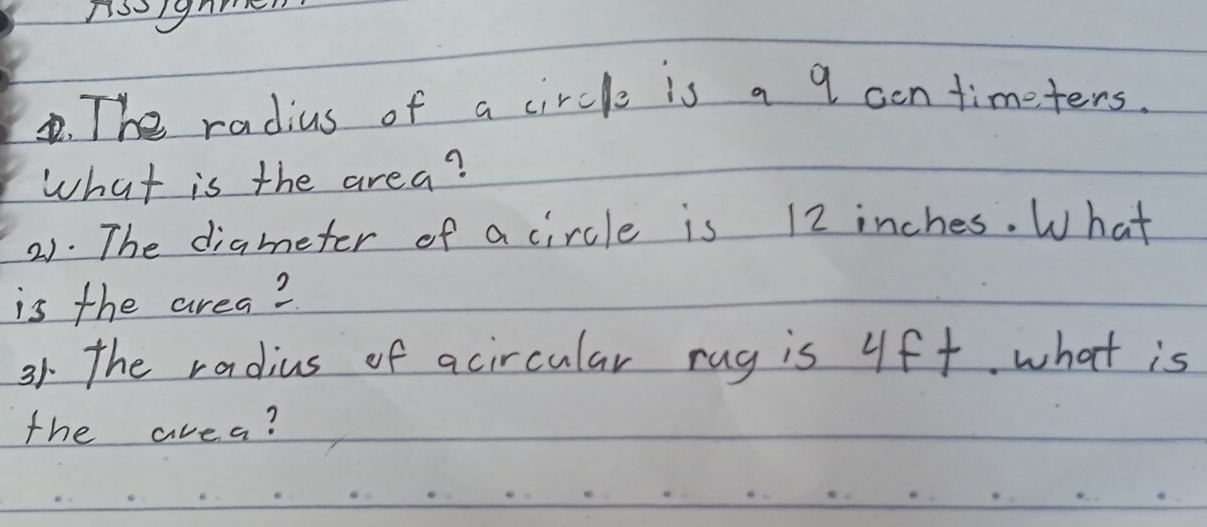 Assignment
1. The radius of a circle is a 9 centimeters.
What is the area?
2). The diameter of a circle is 12 inches. What
is the area?
3). The radius of a circular rug is 4ft. what is
the area?